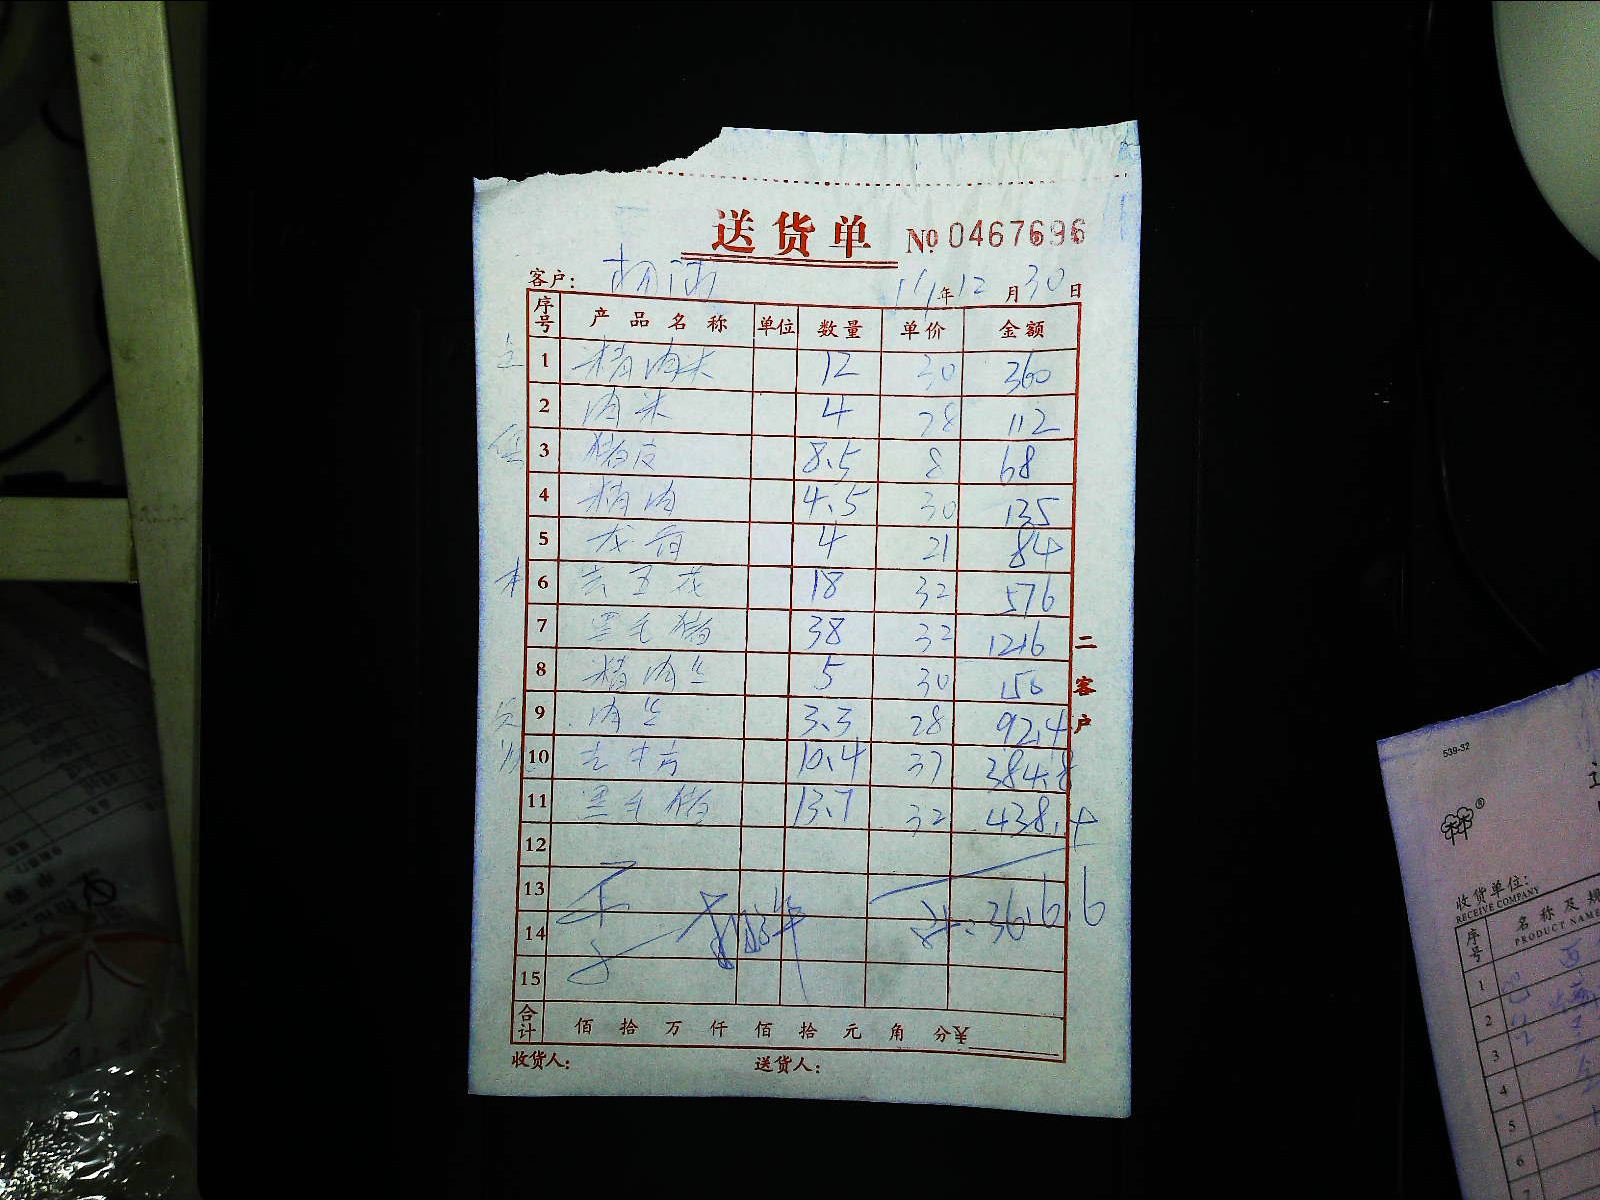 送货单 No 0467696
客户: 年 12 月 30 日
序号 产品名称 单位 数量 单价 金额
1 精肉米 12 30 360
2 肉米 4 28 112
3 猪皮 8.5 8 68
4 精肉 4.5 30 135
5 龙骨 4 21 84
6 去五花 18 32 576
7 黑毛猪 38 32 1216
8 精肉丝 5 30 150
9 肉丝 3.3 28 92.4
10 10.4 37 384.8
11 黑毛猪 13.7 32 438.4
12
13
14 计: 3616.6
15
合计 佰 拾 万 仟 佰 拾 元 角 分 ¥
收货人: 送货人:
二客户
539-32
收货单位:
RECEIVE COMPANY
序号 名称及规
PRODUCT NAME
1
2
3
4
5
6